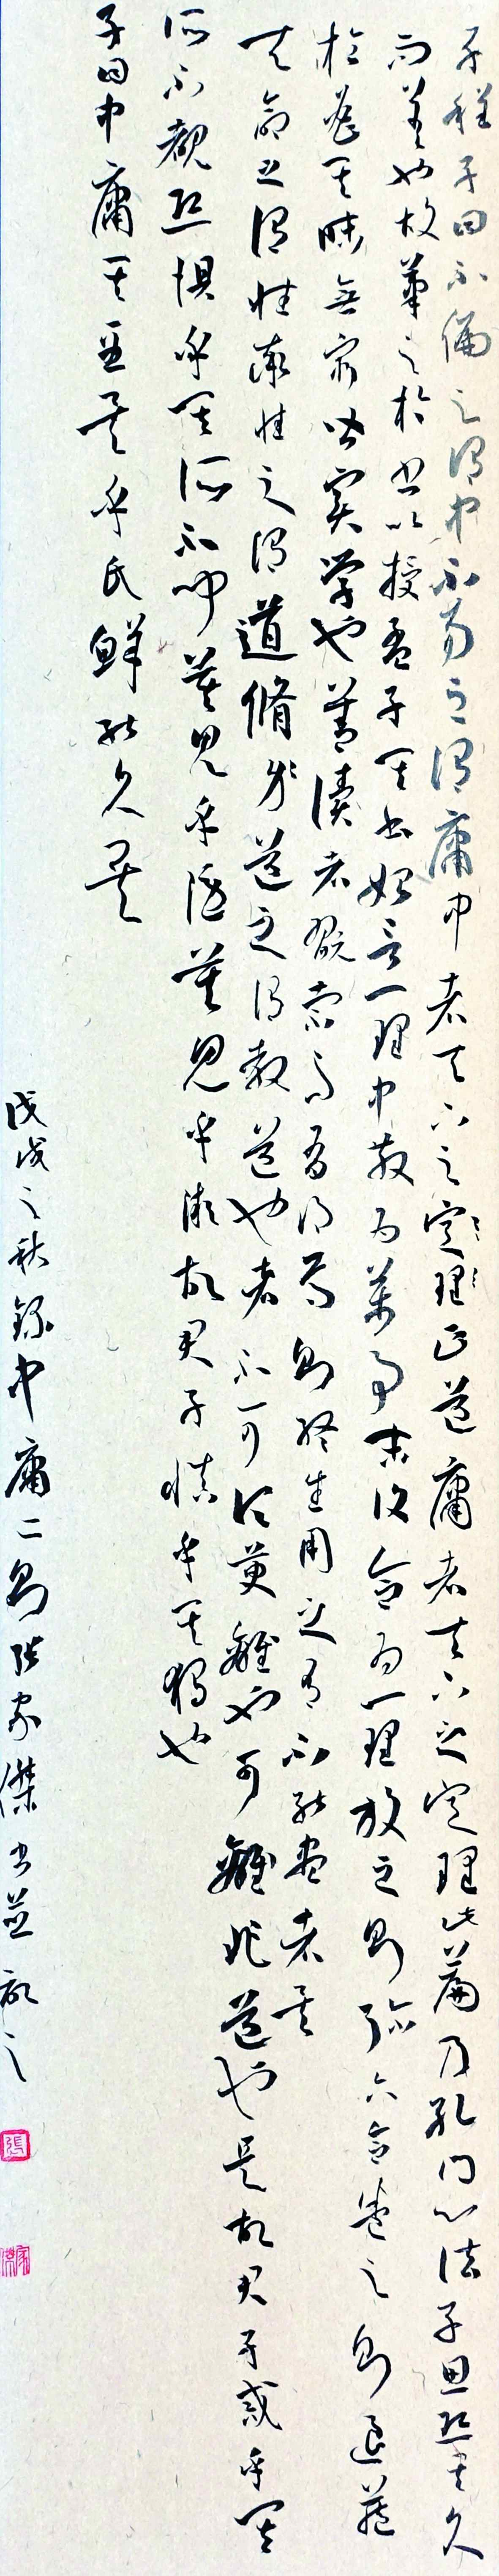 子程子曰不偏之謂中不易之謂庸中者天下之定理正道庸者天下之定理此篇乃孔门心法子思恐其久
而差也故筆之於书以授孟子其书始言一理中散为萬事末復合为一理放之则弥六合卷之则退藏
於密其味無窮皆实学也善读者玩索而有得焉则终生用之有不能尽者矣
天命之謂性率性之謂道脩道之謂教道也者不可须臾離也可離非道也是故君子戒乎其
所不覩恐惧乎其所不闻莫見乎隐莫見乎微故君子慎乎其独也
子曰中庸其至矣乎民鲜能久矣
戊戌之秋録中庸二则张家傑书並記之
張
家傑